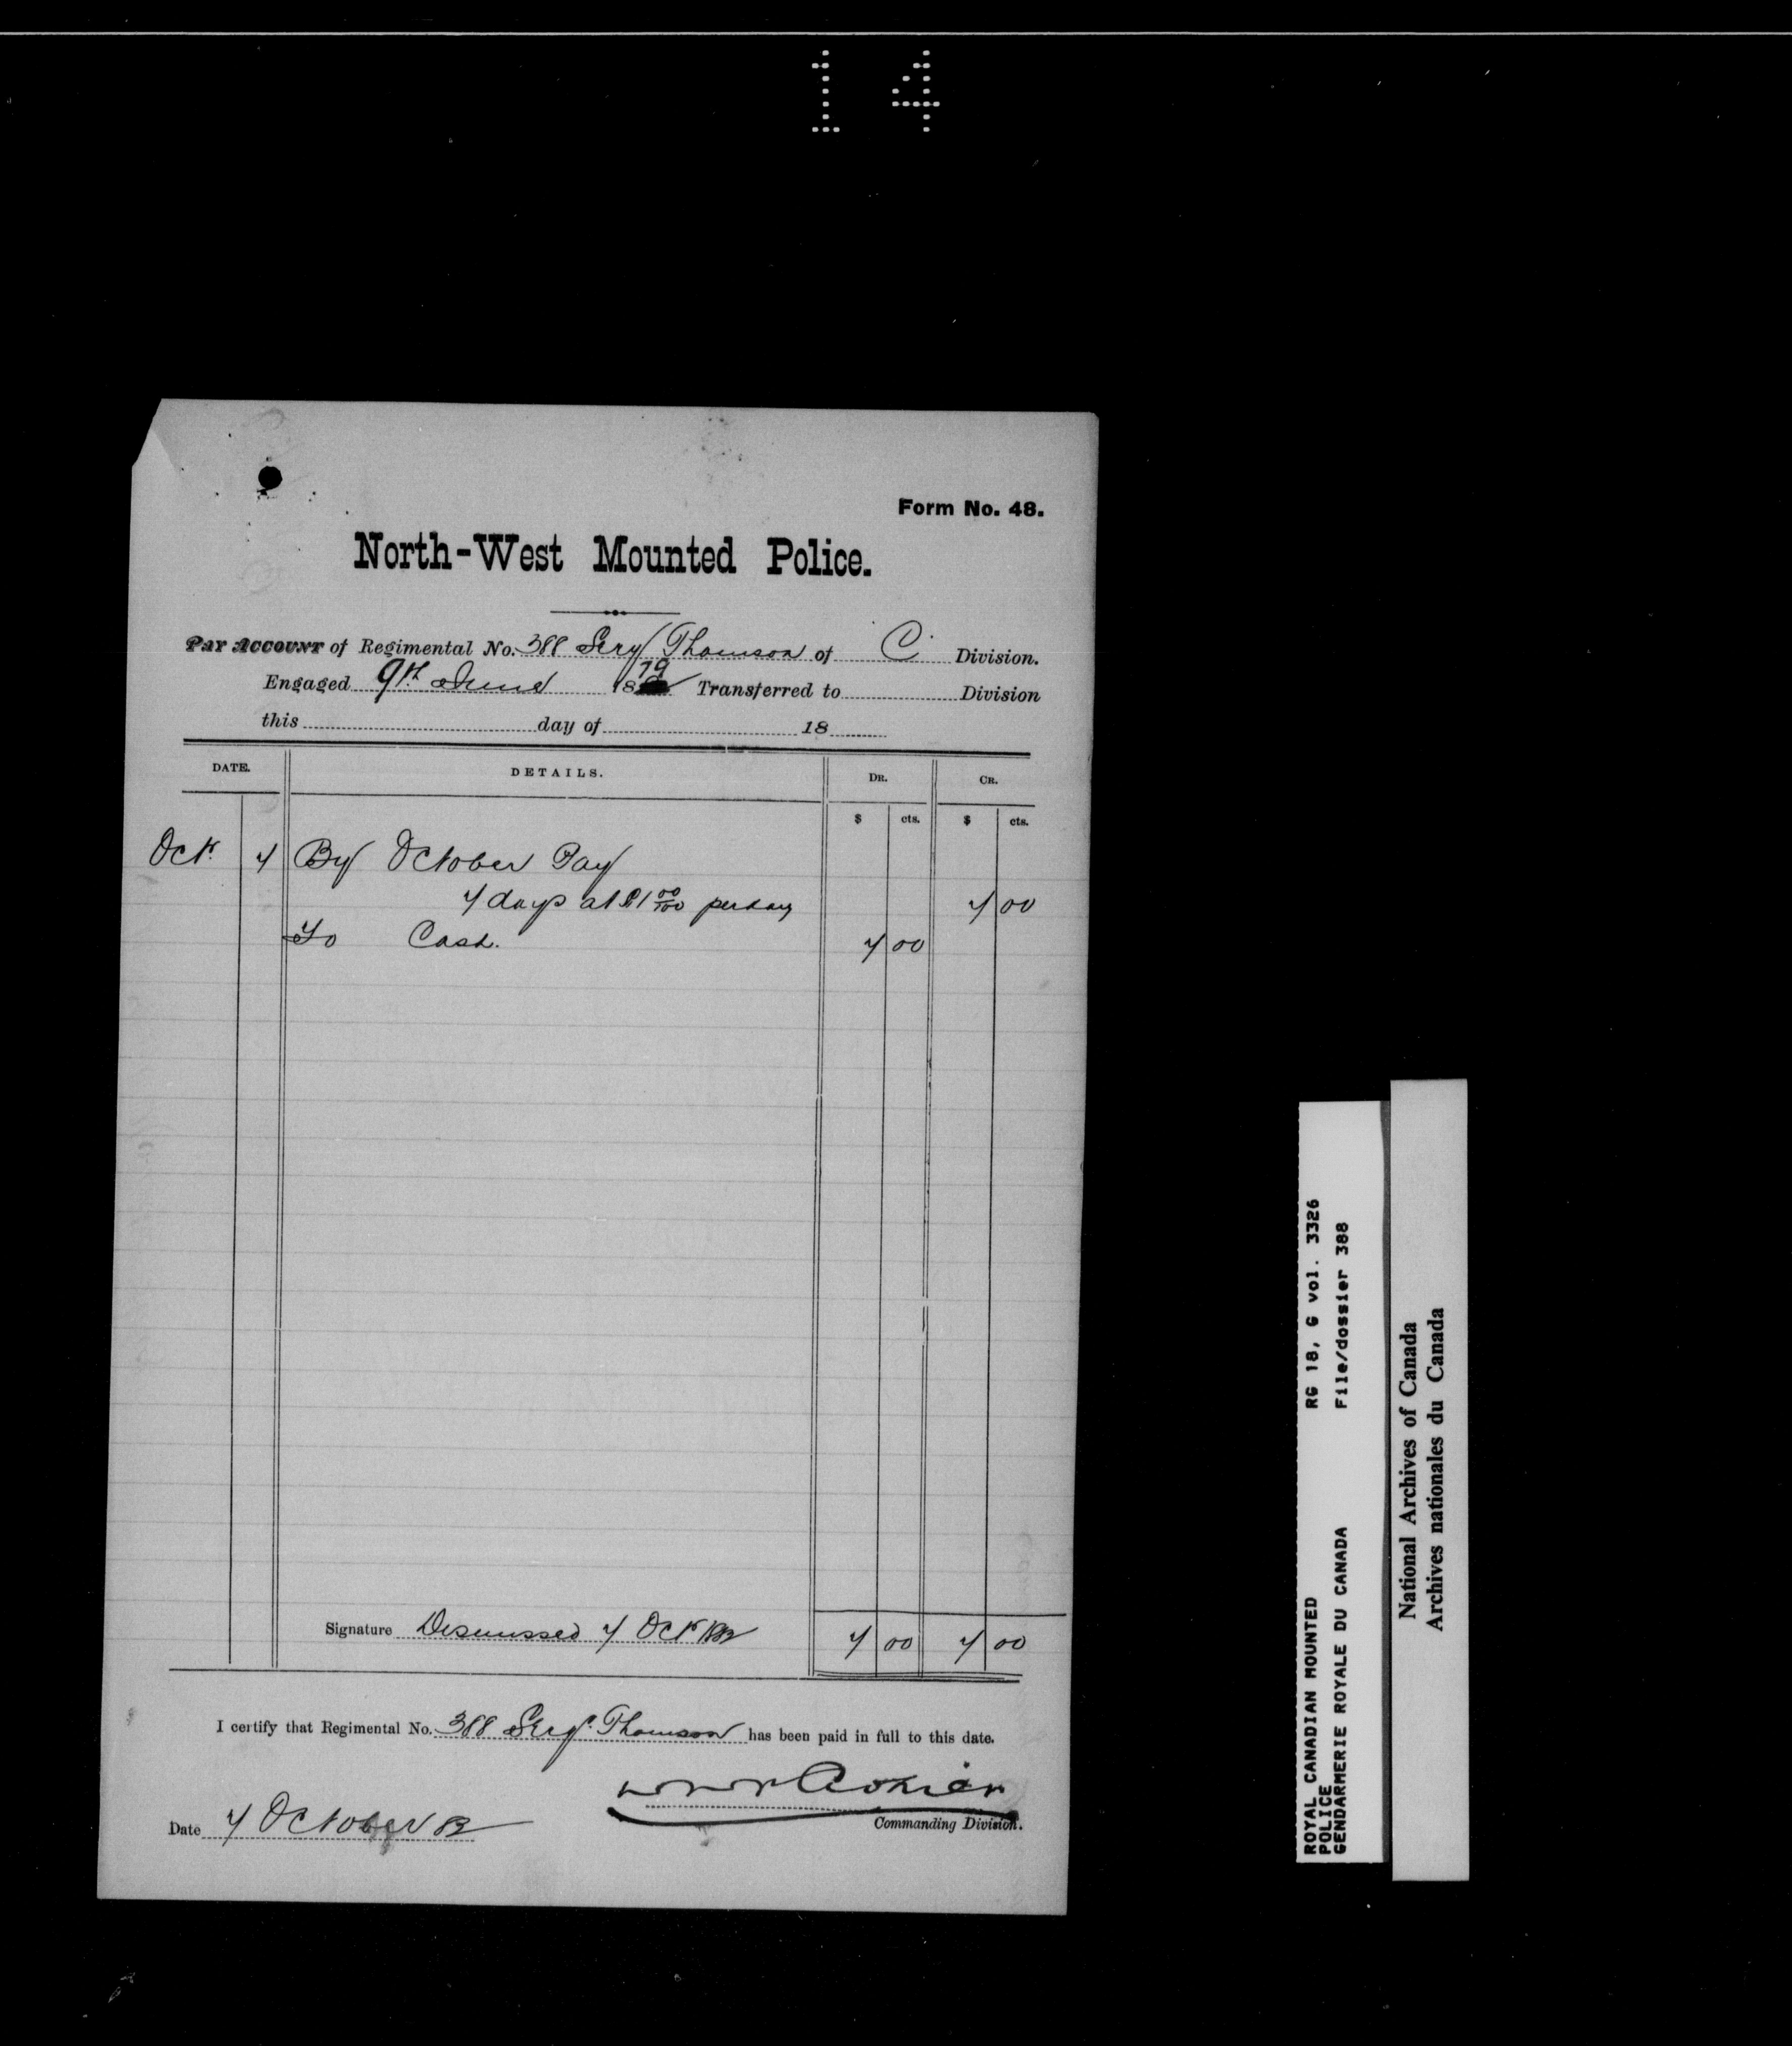 14
Form No. 48.
North-West Mounted Police.
Pay Account of Regimental No. 388 Serg Thomson of C Division.
Engaged 9th June 1879 Transferred to Division
this day of 18
DATE. DETAILS. DR. CR.
$ cts. $ cts.
Oct. 4 By October Pay
4 days at $1 00/100 per day 4 00
To Cash. 4 00
Signature Dismissed 4 Oct 4 00 4 00
I certify that Regimental No. 388 Sergt. Thomson has been paid in full to this date.
Date 4 October
Commanding Division.
ROYAL CANADIAN MOUNTED RG 18, G vol. 3326
POLICE File/dossier 388
GENDARMERIE ROYALE DU CANADA
National Archives of Canada
Archives nationales du Canada